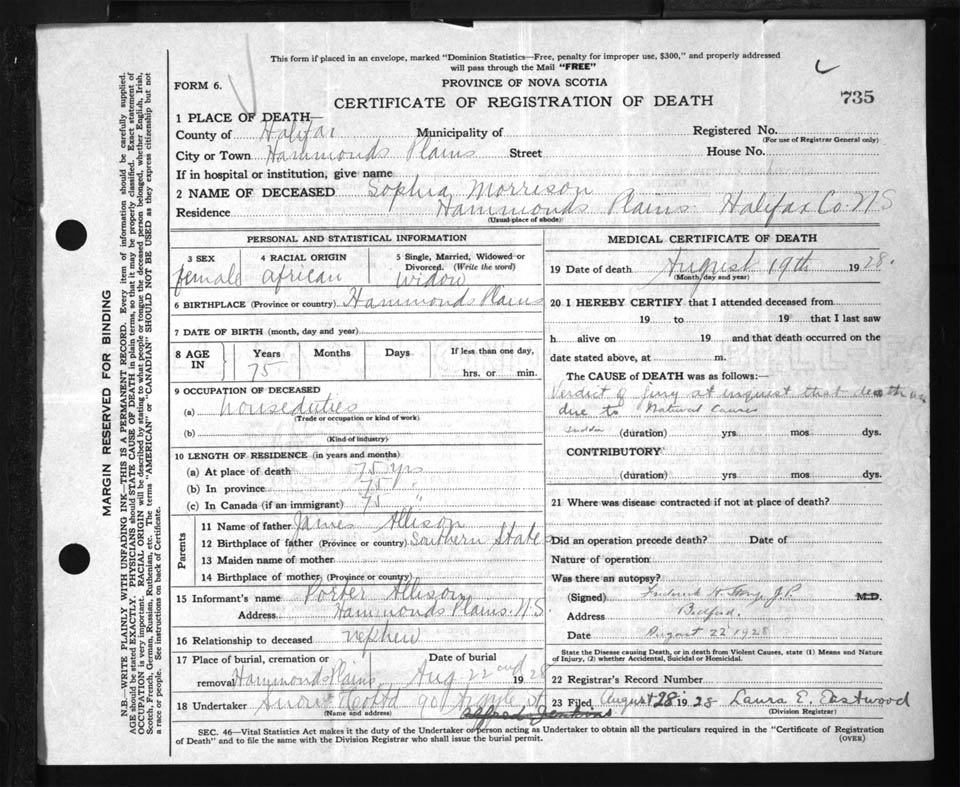 This form if placed in an envelope, marked "Dominion Statistics—Free, penalty for improper use, $300," and properly addressed
will pass through the Mail "FREE"
FORM 6.
PROVINCE OF NOVA SCOTIA
CERTIFICATE OF REGISTRATION OF DEATH
735
1 PLACE OF DEATH—
County of Halifax Municipality of Registered No.
(For use of Registrar General only)
City or Town Hammonds Plains Street House No.
If in hospital or institution, give name
2 NAME OF DECEASED Sophia Morrison
Residence Hammonds Plains Halifax Co. N S
(Usual place of abode)
PERSONAL AND STATISTICAL INFORMATION
3 SEX 4 RACIAL ORIGIN 5 Single, Married, Widowed or
Divorced. (Write the word)
female african widow
6 BIRTHPLACE (Province or country) Hammonds Plains
7 DATE OF BIRTH (month, day and year)
8 AGE IN Years Months Days If less than one day,
75 hrs. or min.
9 OCCUPATION OF DECEASED
(a) house duties
(Trade or occupation or kind of work)
(b)
(Kind of industry)
10 LENGTH OF RESIDENCE (in years and months)
(a) At place of death 75 yrs
(b) In province 75 "
(c) In Canada (if an immigrant) 75 "
Parents
11 Name of father James Allison
12 Birthplace of father (Province or country) Southern States
13 Maiden name of mother
14 Birthplace of mother (Province or country)
15 Informant's name Porter Allison
Address Hammonds Plains. N.S.
16 Relationship to deceased nephew
17 Place of burial, cremation or Date of burial
removal Hammonds Plains Aug 22 nd 1928
18 Undertaker Snow & Co Ltd 90 Argyle St
(Name and address) Alfred Jenkins
MEDICAL CERTIFICATE OF DEATH
19 Date of death August 19th 1928.
(Month, day and year)
20 I HEREBY CERTIFY that I attended deceased from
19 to 19 that I last saw
h alive on 19 and that death occurred on the
date stated above, at m.
The CAUSE of DEATH was as follows:—
Verdict of jury at inquest that death was
due to Natural Causes
sudden (duration) yrs mos dys.
CONTRIBUTORY
(duration) yrs mos dys.
21 Where was disease contracted if not at place of death?
Did an operation precede death? Date of
Nature of operation
Was there an autopsy?
(Signed) Frederick H J.P. M.D.
Address Bedford.
Date August 22 1928
State the Disease causing Death, or in death from Violent Causes, state (1) Means and Nature
of Injury, (2) whether Accidental, Suicidal or Homicidal.
22 Registrar's Record Number
23 Filed August 28 1928 Laura E. Eastwood
(Division Registrar)
SEC. 46—Vital Statistics Act makes it the duty of the Undertaker or person acting as Undertaker to obtain all the particulars required in the "Certificate of Registration
of Death" and to file the same with the Division Registrar who shall issue the burial permit.
(OVER)
MARGIN RESERVED FOR BINDING
N.B.—WRITE PLAINLY WITH UNFADING INK—THIS IS A PERMANENT RECORD. Every item of information should be carefully supplied.
AGE should be stated EXACTLY. PHYSICIANS should STATE CAUSE OF DEATH in plain terms, so that it may be properly classified. Exact statement of
OCCUPATION is very important. RACIAL ORIGIN will be described by stating to what people or tongue the deceased person belonged, whether English, Irish,
Scotch, French, German, Russian, Ruthenian, etc. The terms "AMERICAN" or "CANADIAN" SHOULD NOT BE USED as they express citizenship but not
a race or people. See instructions on back of Certificate.